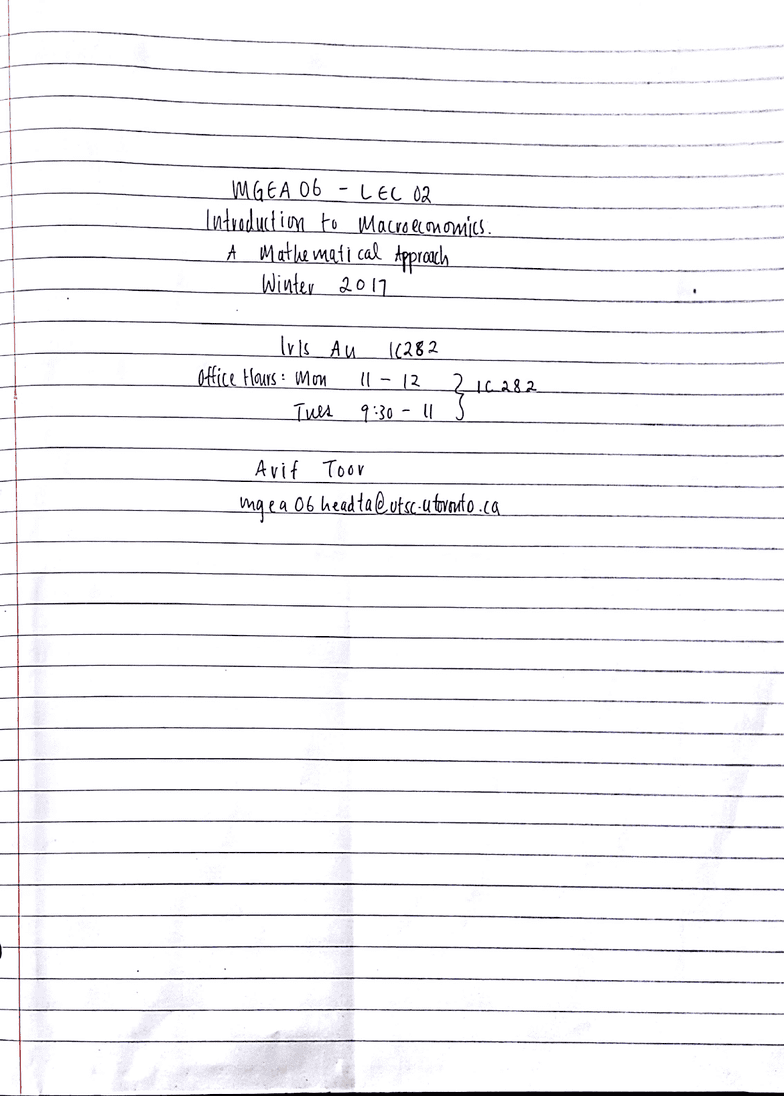 MGEA06 - LEC 02
Introduction to Macroeconomics.
A Mathematical Approach
Winter 2017
Iris Au IC282
Office Hours: Mon 11 - 12 } IC 282
Tues 9:30 - 11
Arif Toor
mgea06headta@utsc.utoronto.ca